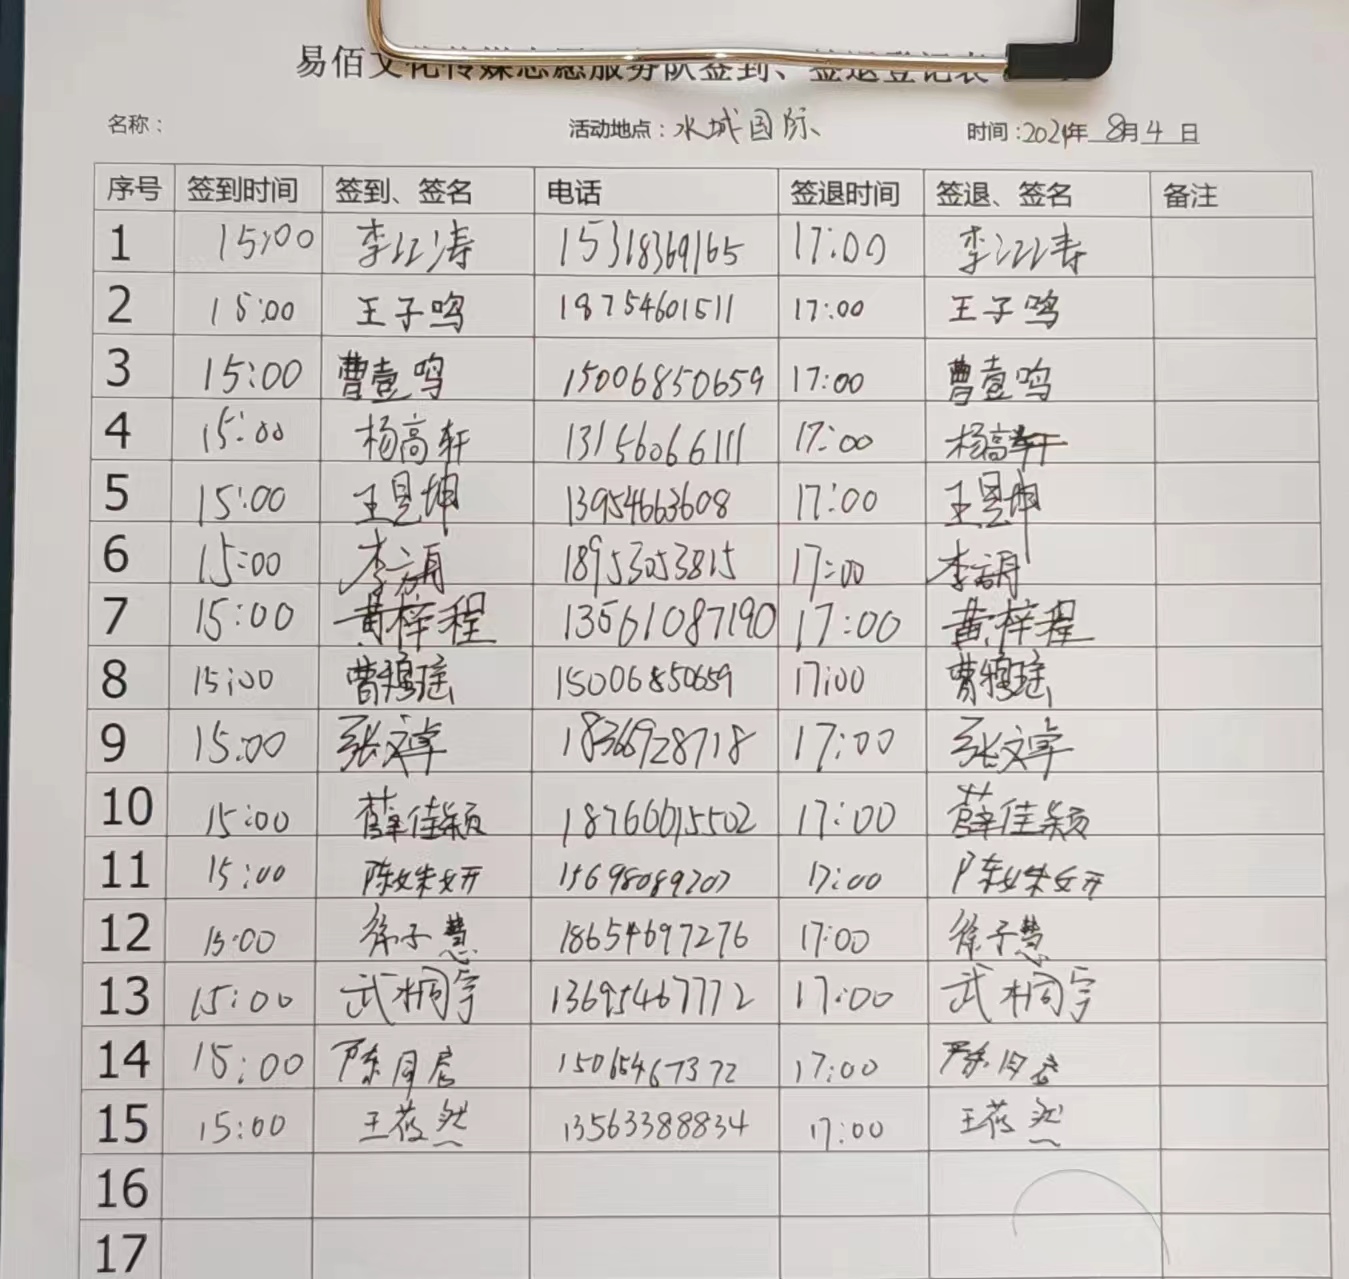 易佰文化传媒志愿服务队签到、签退登记表
名称：
活动地点：水城国际
时间：2024年 8月 4 日
序号 签到时间 签到、签名 电话 签退时间 签退、签名 备注
1 15:00 李江涛 15318369165 17:00 李江涛
2 15:00 王子鸣 18754601511 17:00 王子鸣
3 15:00 曹壹鸣 15006850659 17:00 曹壹鸣
4 15:00 杨高轩 13156066111 17:00 杨高轩
5 15:00 王昱坤 13954663608 17:00 王昱坤
6 15:00 李 18953053815 17:00 李
7 15:00 黄梓程 13561087190 17:00 黄梓程
8 15:00 曹雅瑶 15006850659 17:00 曹雅瑶
9 15:00 张文卓 18366928718 17:00 张文卓
10 15:00 薛佳颖 18766615502 17:00 薛佳颖
11 15:00 陈姝妍 15698089207 17:00 陈姝妍
12 15:00 徐子慧 18654697276 17:00 徐子慧
13 15:00 武桐宇 13695467772 17:00 武桐宇
14 15:00 陈同启 15065467372 17:00 陈同启
15 15:00 王莜然 13563388834 17:00 王莜然
16
17